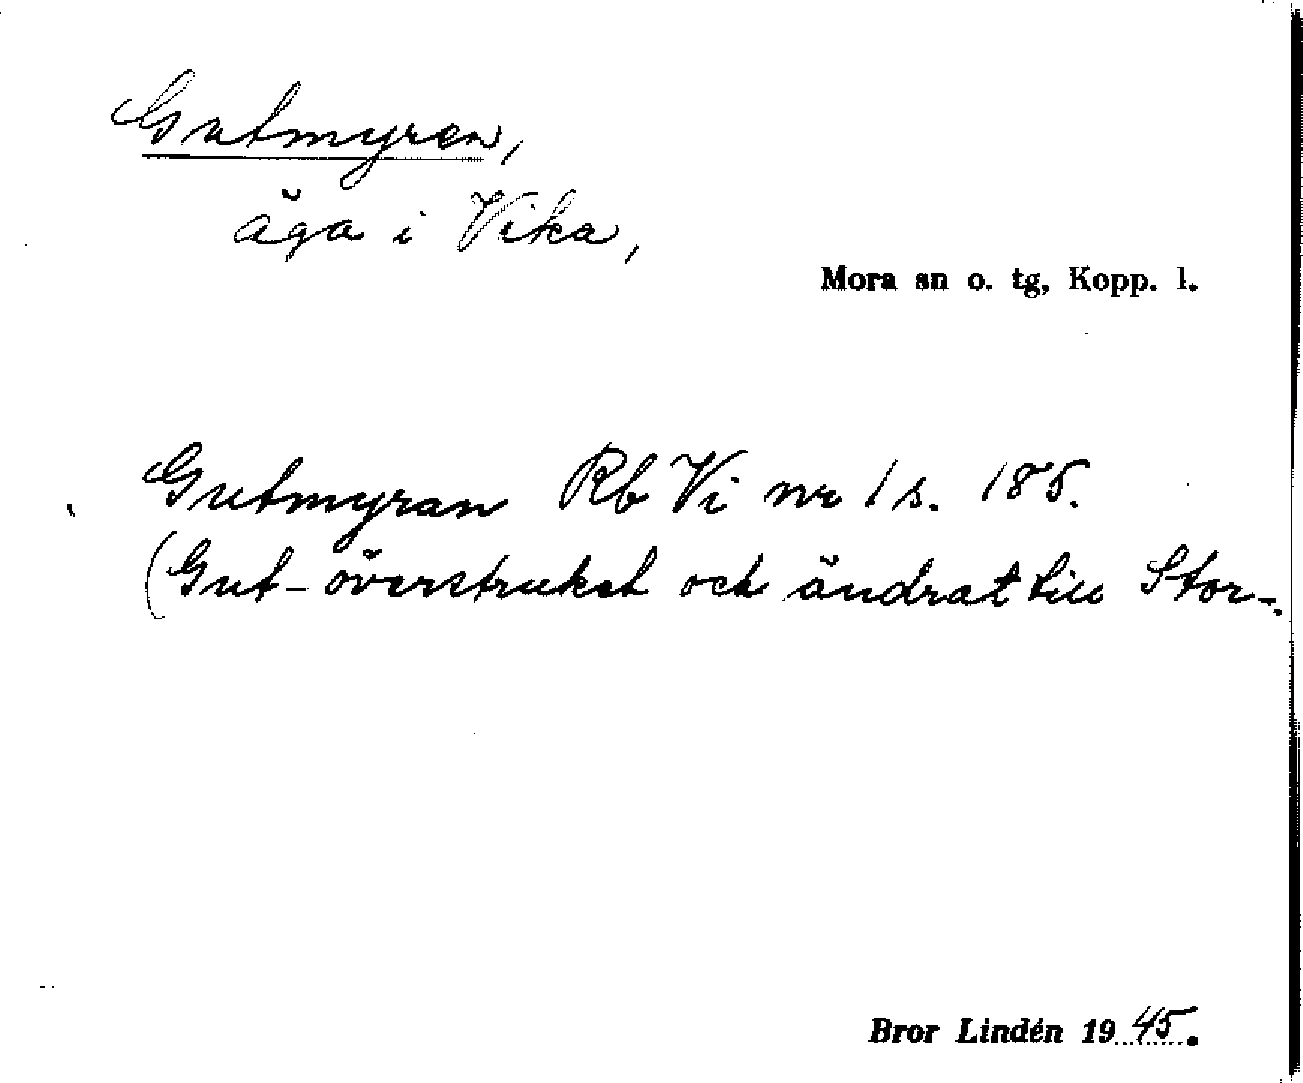 Gutmyren,
äga i Vika,
Mora sn o. tg, Kopp. l.
Gutmyran Rb Vi nr 1 s. 185.
(Gut- överstruket och ändrat till Stor-.
Bror Lindén 1945.